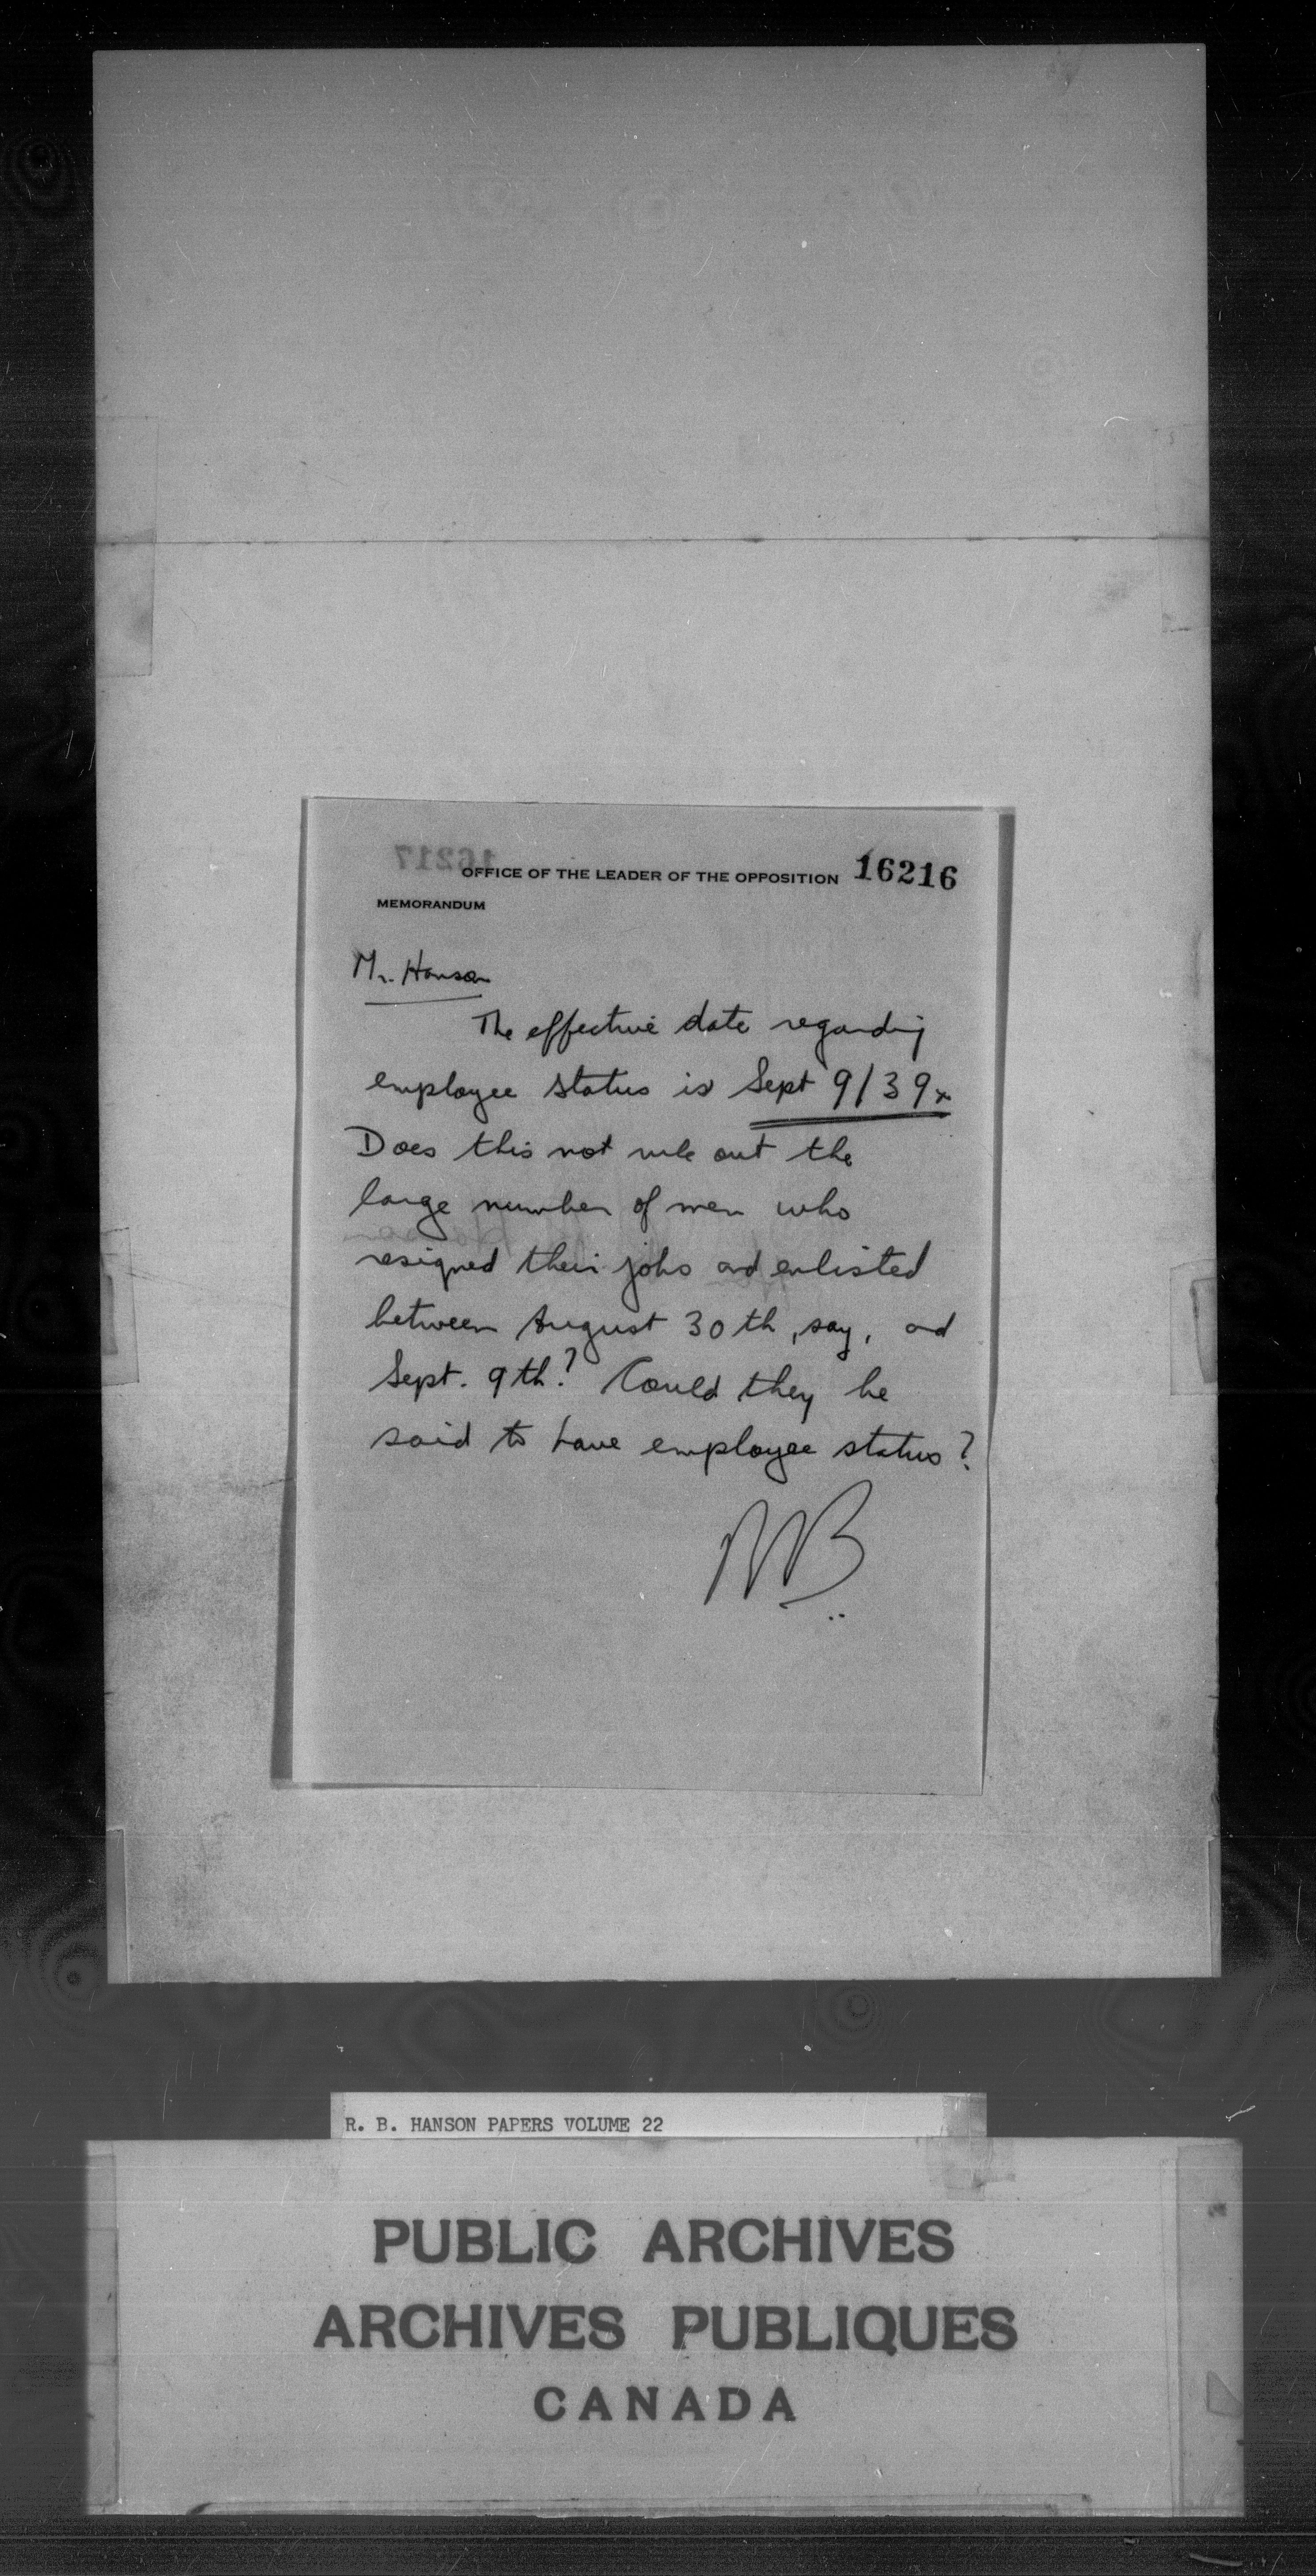 16217
OFFICE OF THE LEADER OF THE OPPOSITION 16216
MEMORANDUM
Mr. Hanson
The effective date regarding
employee status is Sept 9/39.
Does this not rule out the
large number of men who
resigned their jobs and enlisted
between August 30th, say, and
Sept. 9th? Could they be
said to have employee status?
R. B. HANSON PAPERS VOLUME 22
PUBLIC ARCHIVES
ARCHIVES PUBLIQUES
CANADA